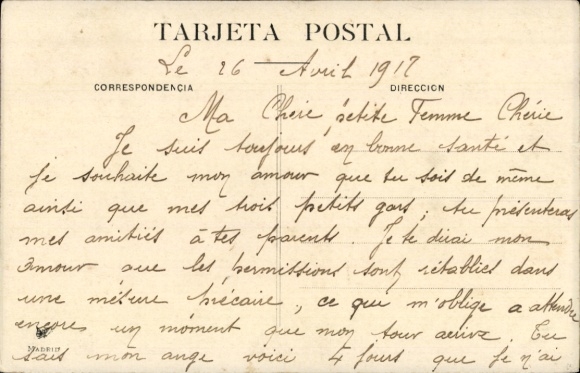 TARJETA POSTAL
Le 26 Avril 1917
CORRESPONDENCIA
DIRECCION
Ma Chère petite Femme Chérie
Je suis toujours en bonne santé et
je souhaite mon amour que tu sois de même
ainsi que mes trois petits gars, tu présenteras
mes amitiés à tes parents. Je te dirai mon
amour que les permissions sont rétablies dans
une mésure précaire, ce que m'oblige a attendre
encore un moment que mon tour arrive. Tu
sais mon ange voici 4 jours que je n'ai
MADRID